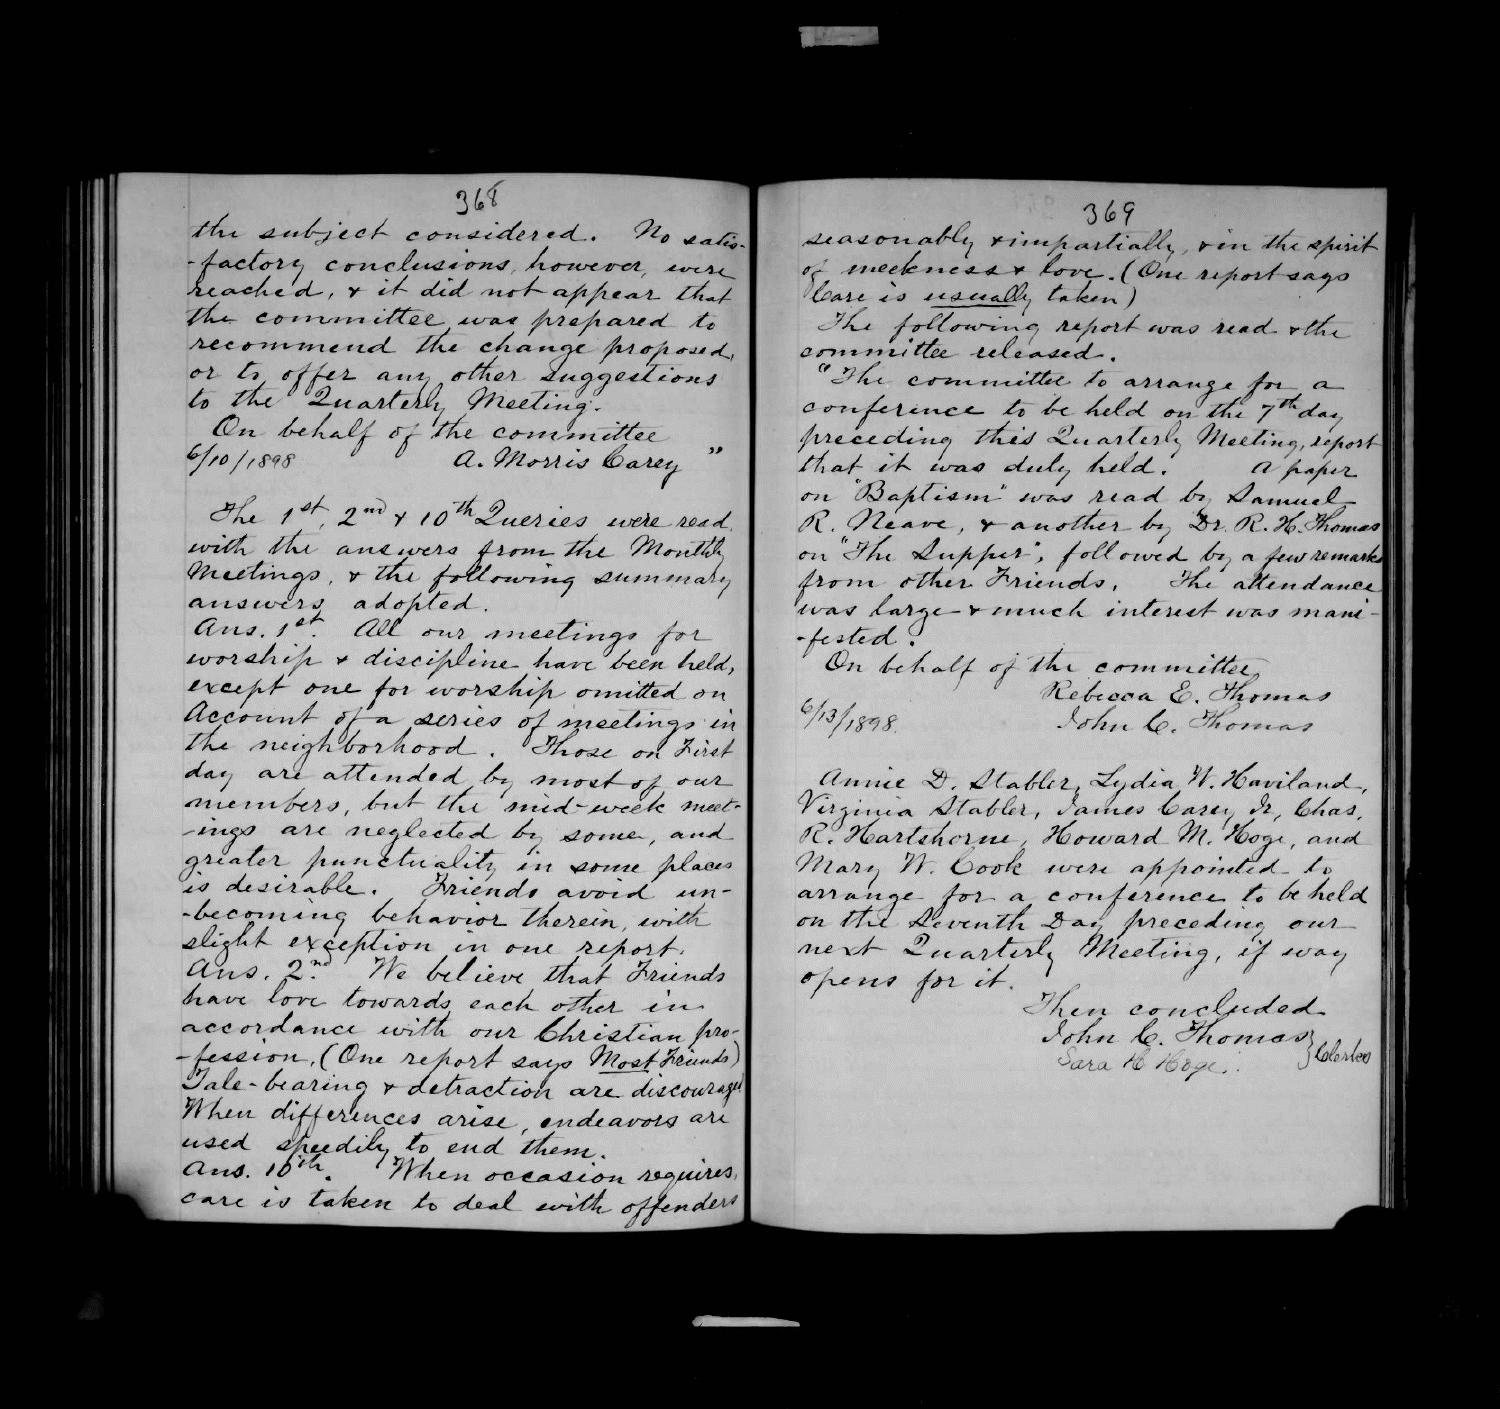 368
the subject considered. No satis-
-factory conclusions, however, were
reached, & it did not appear that
the committee was prepared to
recommend the change proposed,
or to offer any other suggestions
to the Quarterly Meeting.
On behalf of the committee
6/10/1898 A. Morris Carey "
The 1st, 2nd & 10th Queries were read
with the answers from the Monthly
Meetings, & the following summary
answers adopted.
Ans. 1st. All our meetings for
worship & discipline have been held,
except one for worship omitted on
Account of a series of meetings in
the neighborhood. Those on First
day are attended by most of our
members, but the mid-week meet-
-ings are neglected by some, and
greater punctuality in some places
is desirable. Friends avoid un-
-becoming behavior therein, with
slight exception in one report.
Ans. 2nd. We believe that Friends
have love towards each other in
accordance with our Christian pro-
-fession, (One report says Most Friends)
Tale-bearing & detraction are discouraged
When differences arise, endeavors are
used speedily to end them.
Ans. 10th. When occasion requires,
care is taken to deal with offenders
369
seasonably & impartially, & in the spirit
of meekness & love. (One report says
Care is usually taken)
The following report was read & the
committee released.
"The committee to arrange for a
conference to be held on the 7th day
preceding this Quarterly Meeting, report
that it was duly held. A paper
on "Baptism" was read by Samuel
R. Neave, & another by Dr. R. H. Thomas
on "The Supper", followed by a few remarks
from other Friends. The attendance
was large & much interest was mani-
-fested.
On behalf of the committee
Rebecca E. Thomas
6/13/1898. John C. Thomas
Annie D. Stabler, Lydia W. Haviland,
Virginia Stabler, James Carey, Jr, Chas.
R. Hartshorne, Howard M. Hoge, and
Mary W. Cook were appointed to
arrange for a conference to be held
on the Seventh Day preceding our
next Quarterly Meeting, if way
opens for it.
Then concluded
John C. Thomas
Sara H Hoge. } Clerks